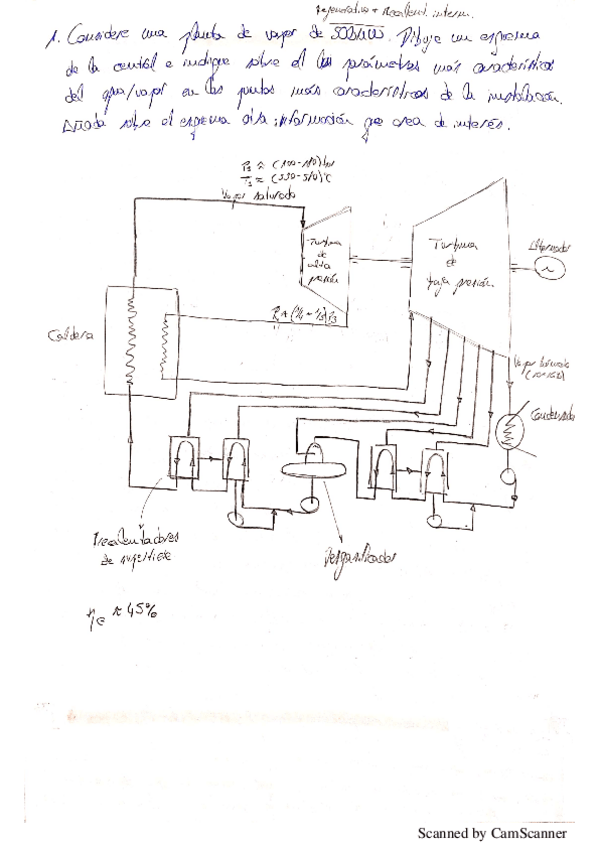 Regenerativo + Recalent. interm.
1. Considere una planta de vapor de 500MW. Dibuje un esquema
de la central e indique sobre él los parámetros más característicos
del agua/vapor en los puntos más característicos de la instalación.
Añada sobre el esquema otra información que crea de interés.
Vapor saturado
Turbina
de
alta
presión
Turbina
de
baja presión
Alternador
Caldera
Vapor húmedo
Condensador
Precalentadores
de superficie
Desgasificador
ηe ≈ 45%
Scanned by CamScanner